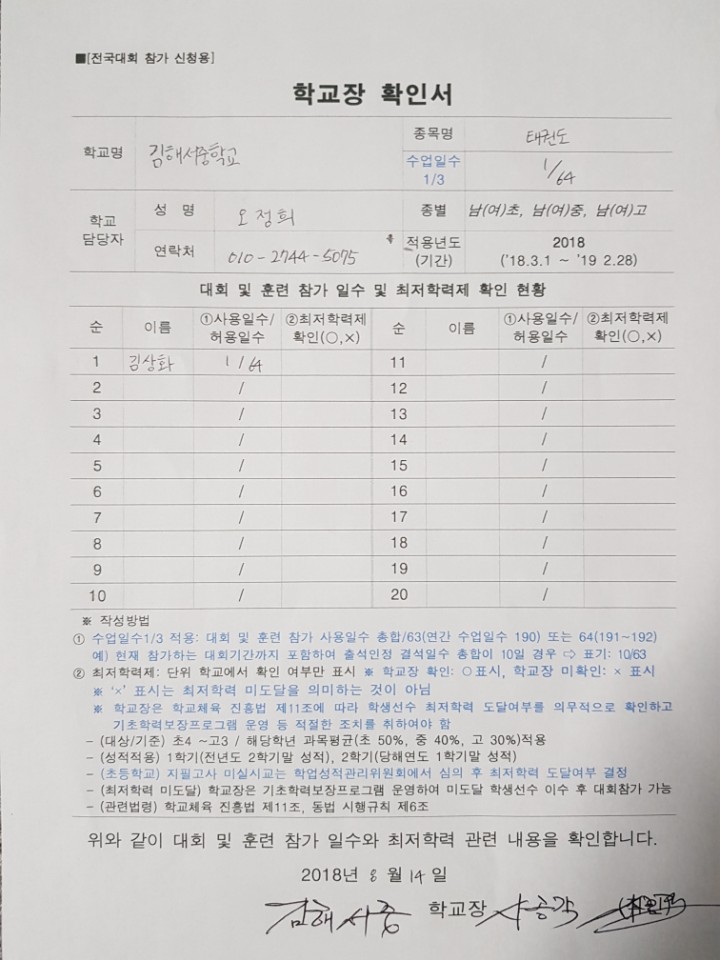 ■[전국대회 참가 신청용]
학교장 확인서
학교명 김해서중학교 종목명 태권도
수업일수 1/3 1/64
학교 담당자 성 명 오정희 종별 남(여)초, 남(여)중, 남(여)고
연락처 010-2744-5075 적용년도 (기간) 2018 ('18.3.1 ~ '19 2.28)
대회 및 훈련 참가 일수 및 최저학력제 확인 현황
순 이름 ①사용일수/허용일수 ②최저학력제 확인(○,×) 순 이름 ①사용일수/허용일수 ②최저학력제 확인(○,×)
1 김상화 1/64 11 /
2 / 12 /
3 / 13 /
4 / 14 /
5 / 15 /
6 / 16 /
7 / 17 /
8 / 18 /
9 / 19 /
10 / 20 /
※ 작성방법
① 수업일수1/3 적용: 대회 및 훈련 참가 사용일수 총합/63(연간 수업일수 190) 또는 64(191~192)
예) 현재 참가하는 대회기간까지 포함하여 출석인정 결석일수 총합이 10일 경우 ⇨ 표기: 10/63
② 최저학력제: 단위 학교에서 확인 여부만 표시 ※ 학교장 확인: ○표시, 학교장 미확인: × 표시
※ '×' 표시는 최저학력 미도달을 의미하는 것이 아님
※ 학교장은 학교체육 진흥법 제11조에 따라 학생선수 최저학력 도달여부를 의무적으로 확인하고
기초학력보장프로그램 운영 등 적절한 조치를 취하여야 함
- (대상/기준) 초4 ~고3 / 해당학년 과목평균(초 50%, 중 40%, 고 30%)적용
- (성적적용) 1학기(전년도 2학기말 성적), 2학기(당해연도 1학기말 성적)
- (초등학교) 지필고사 미실시교는 학업성적관리위원회에서 심의 후 최저학력 도달여부 결정
- (최저학력 미도달) 학교장은 기초학력보장프로그램 운영하여 미도달 학생선수 이수 후 대회참가 가능
- (관련법령) 학교체육 진흥법 제11조, 동법 시행규칙 제6조
위와 같이 대회 및 훈련 참가 일수와 최저학력 관련 내용을 확인합니다.
2018년 8 월 14 일
김해서중 학교장